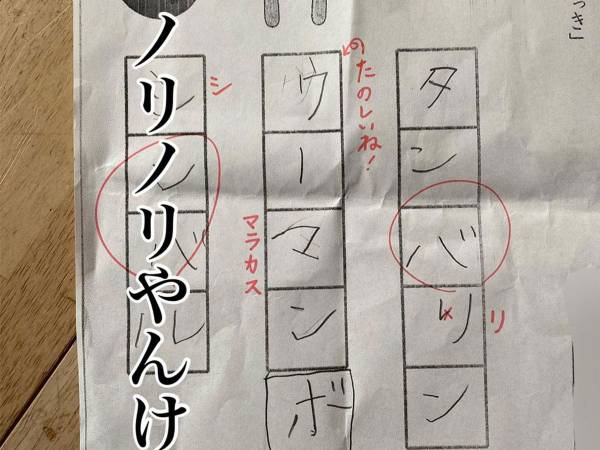 っき」
タンバリン
リ
のたのしいね!
ウーマンボ
マラカス
シンバル
シ
ノリノリやんけ